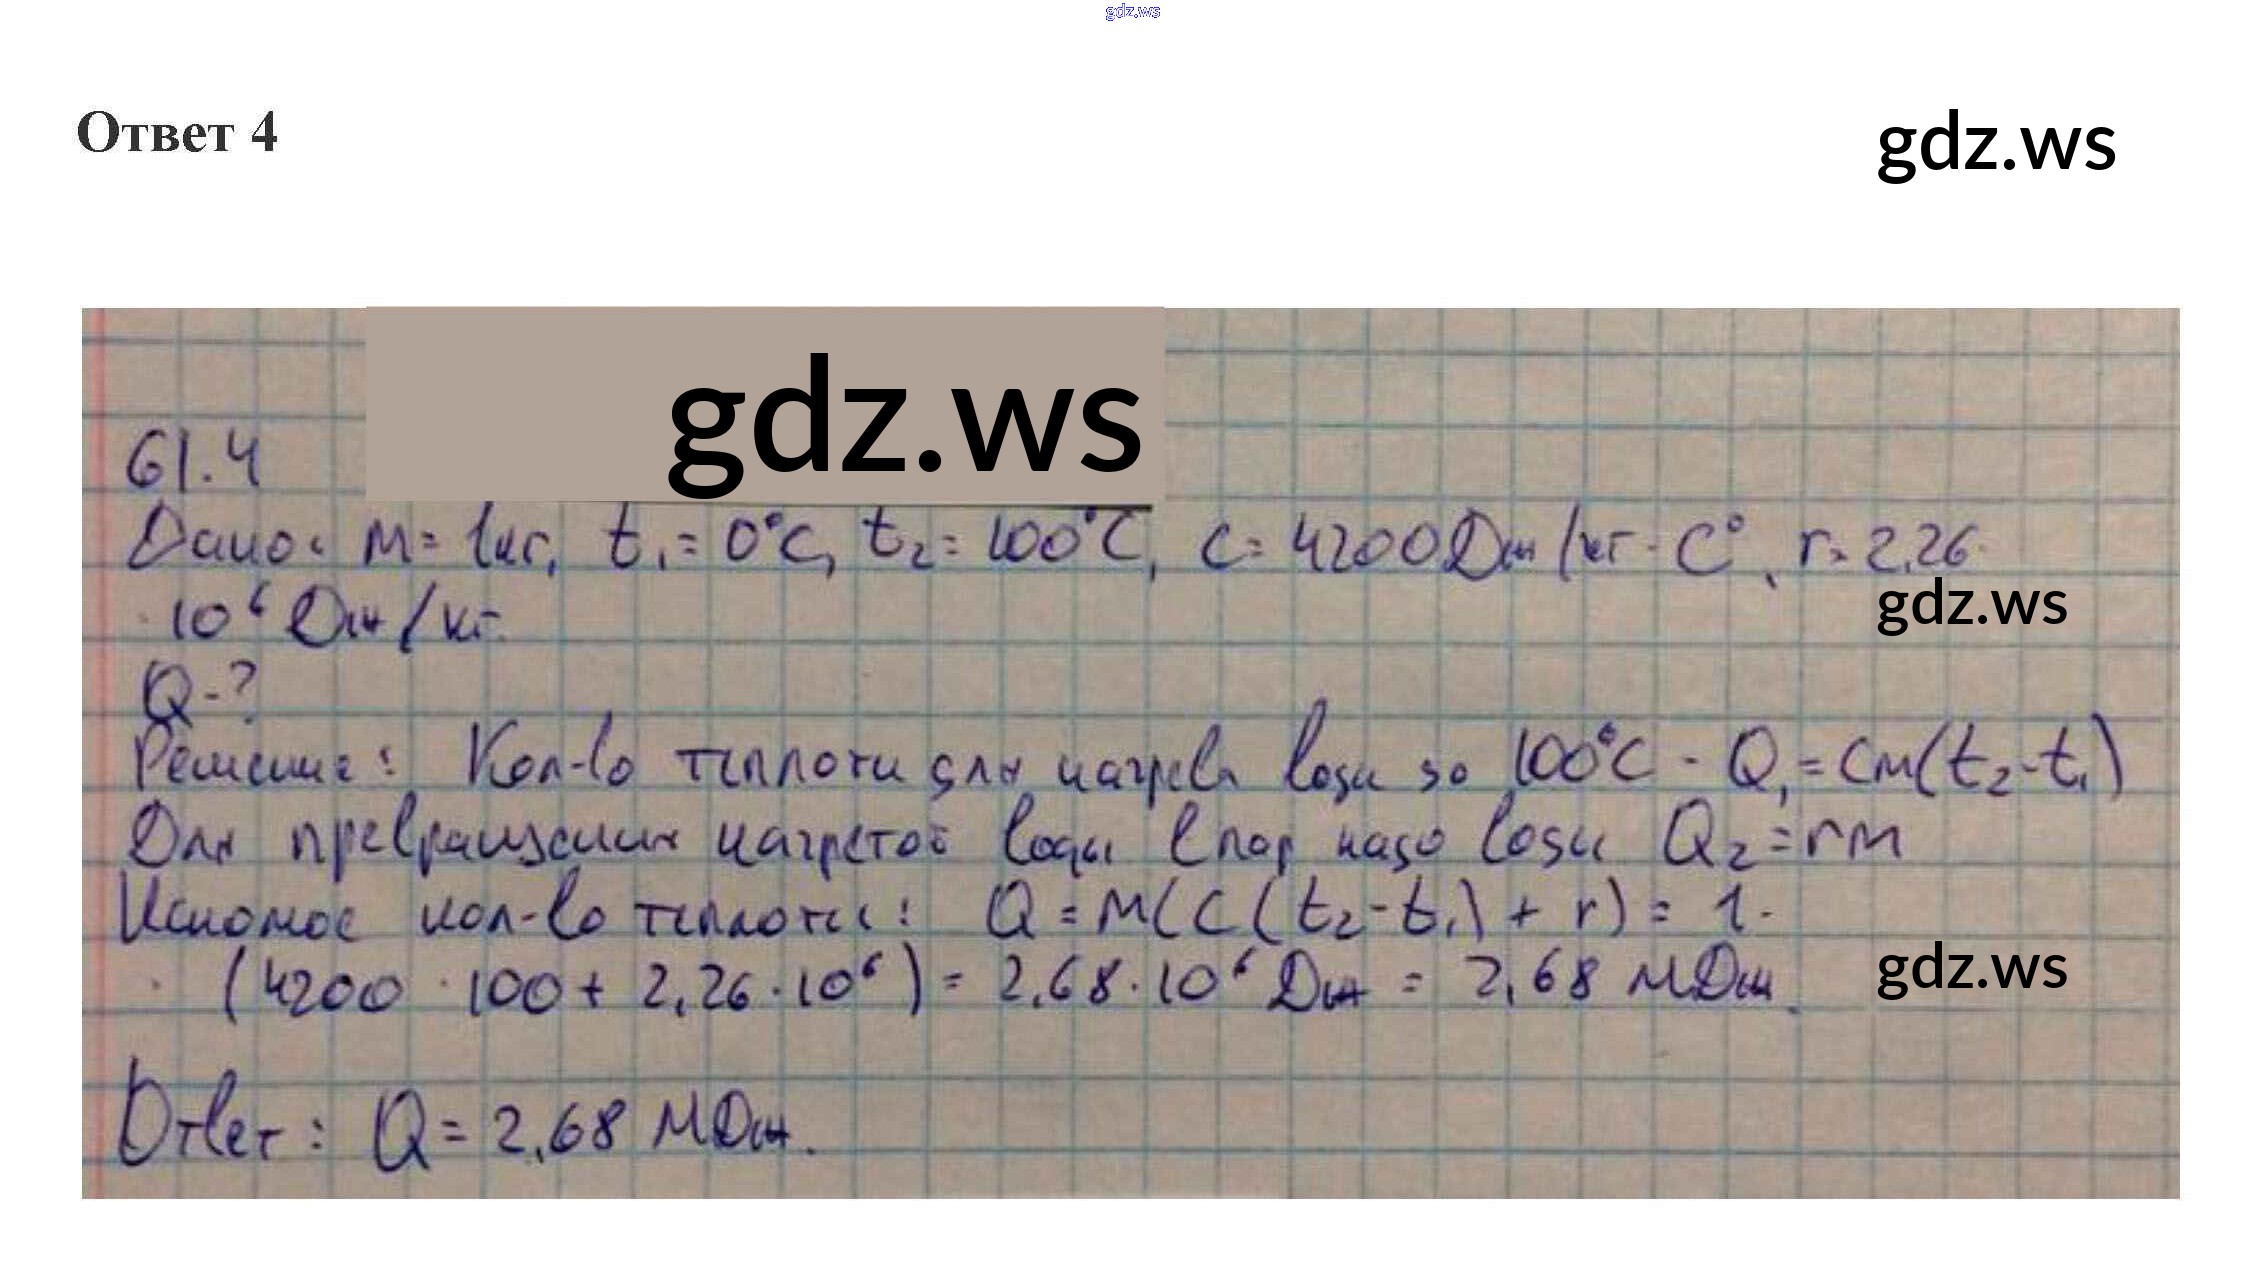 gdz.ws
Ответ 4
gdz.ws
gdz.ws
61.4
Дано: m = 1кг, t₁ = 0°C, t₂ = 100°C, c = 4200Дж/кг · C°, r = 2,26 ·
· 10⁶ Дж/кг.
gdz.ws
Q - ?
Решение: Кол-во теплоти для нагрева воды до 100°C - Q₁ = cm(t₂-t₁)
Для превращения нагретой воды в пар надо воды Q₂ = rm
Искомое кол-во теплоты: Q = m(c(t₂-t₁) + r) = 1 ·
· (4200 · 100 + 2,26 · 10⁶) = 2,68 · 10⁶ Дж = 2,68 МДж.
gdz.ws
Ответ: Q = 2,68 МДж.